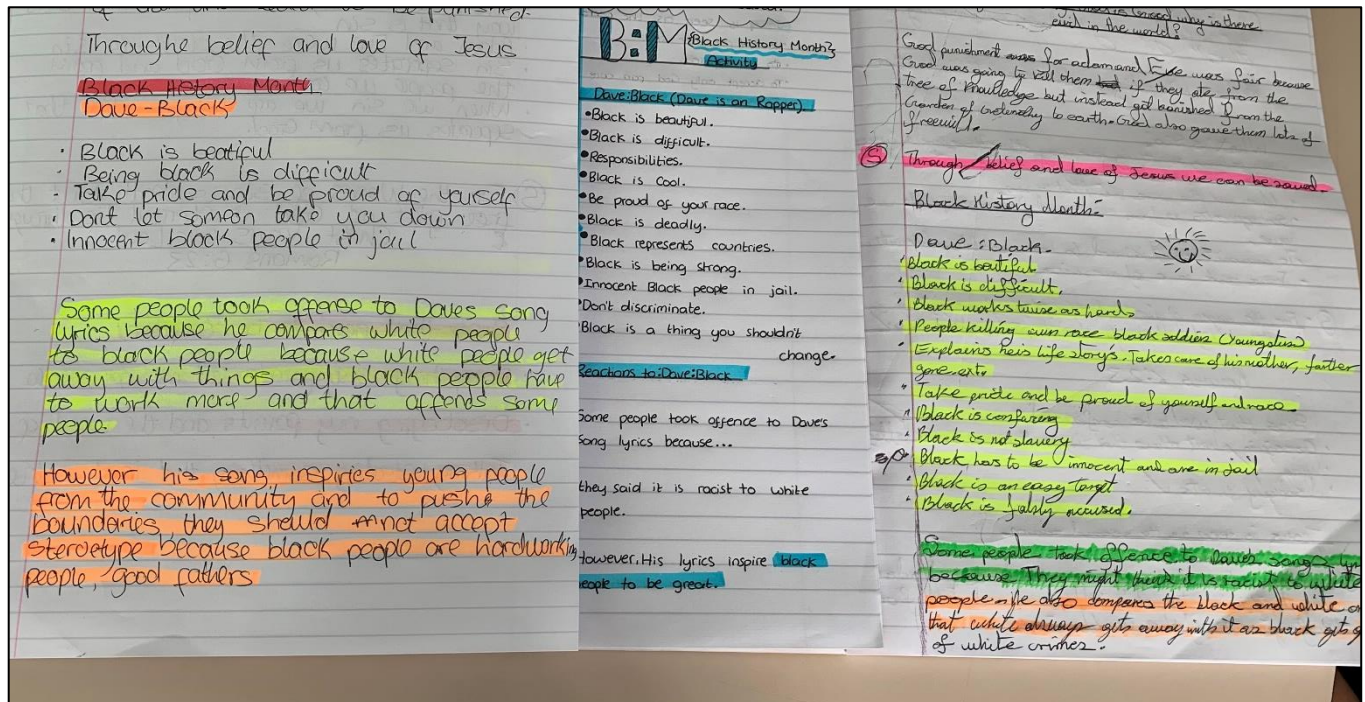 to be punished.
Throughe belief and love of Jesus
Black History Month
Dave-Black
· Black is beatiful
· Being black is difficult
- Take pride and be proud of yourself
· Dont let someon take you down
· Innocent black people in jail
Some people took offense to Daves song
lyrics because he compares white people
to black people because white people get
away with things and black people have
to work more and that offends some
people.
However his song inspiries young people
from the community and to pushe the
boundaries, they should not accept
steroetype because black people are hardworking
people, good fathers
B:M {Black History Month}
Activity
Dave:Black (Dave is an Rapper).
•Black is beautiful.
•Black is difficult.
•Responsibilities.
•Black is cool.
•Be proud of your race.
•Black is deadly.
•Black represents countries.
•Black is being strong.
•Innocent Black people in jail.
•Don't discriminate.
•Black is a thing you shouldn't
change.
Reactions to:Dave:Black
Some people took offence to Dave's
song lyrics because...
they said it is racist to white
people.
However, His lyrics inspire black
people to be great.
why is there
evil in the world?
God punishment for adam and Eve was fair because
God was going to kill them if they ate from the
tree of knowledge but instead got banished from the
Garden of to earth. God also gave them lots of
freewill.
5 Through belief and love of Jesus we can be saved.
Black History Month:
Dave : Black.
· Black is beatiful.
· Black is difficult.
· Black works twise as hard.
· People killing own race black soldiers (youngsters)
· Explains heis life story's. Takes care of his mother, farther
gone.ext.
· Take pride and be proud of yourself and race.
· Black is confusing
· Black is not slavery
· Black has to be innocent and are in jail
· Black is an easy target
· Black is falsly accused.
Some people took offence to Daves song
beckause They might think it is racist to white
people. He also compares the black and white
that white always gets away with it as black gets
of white crimes.